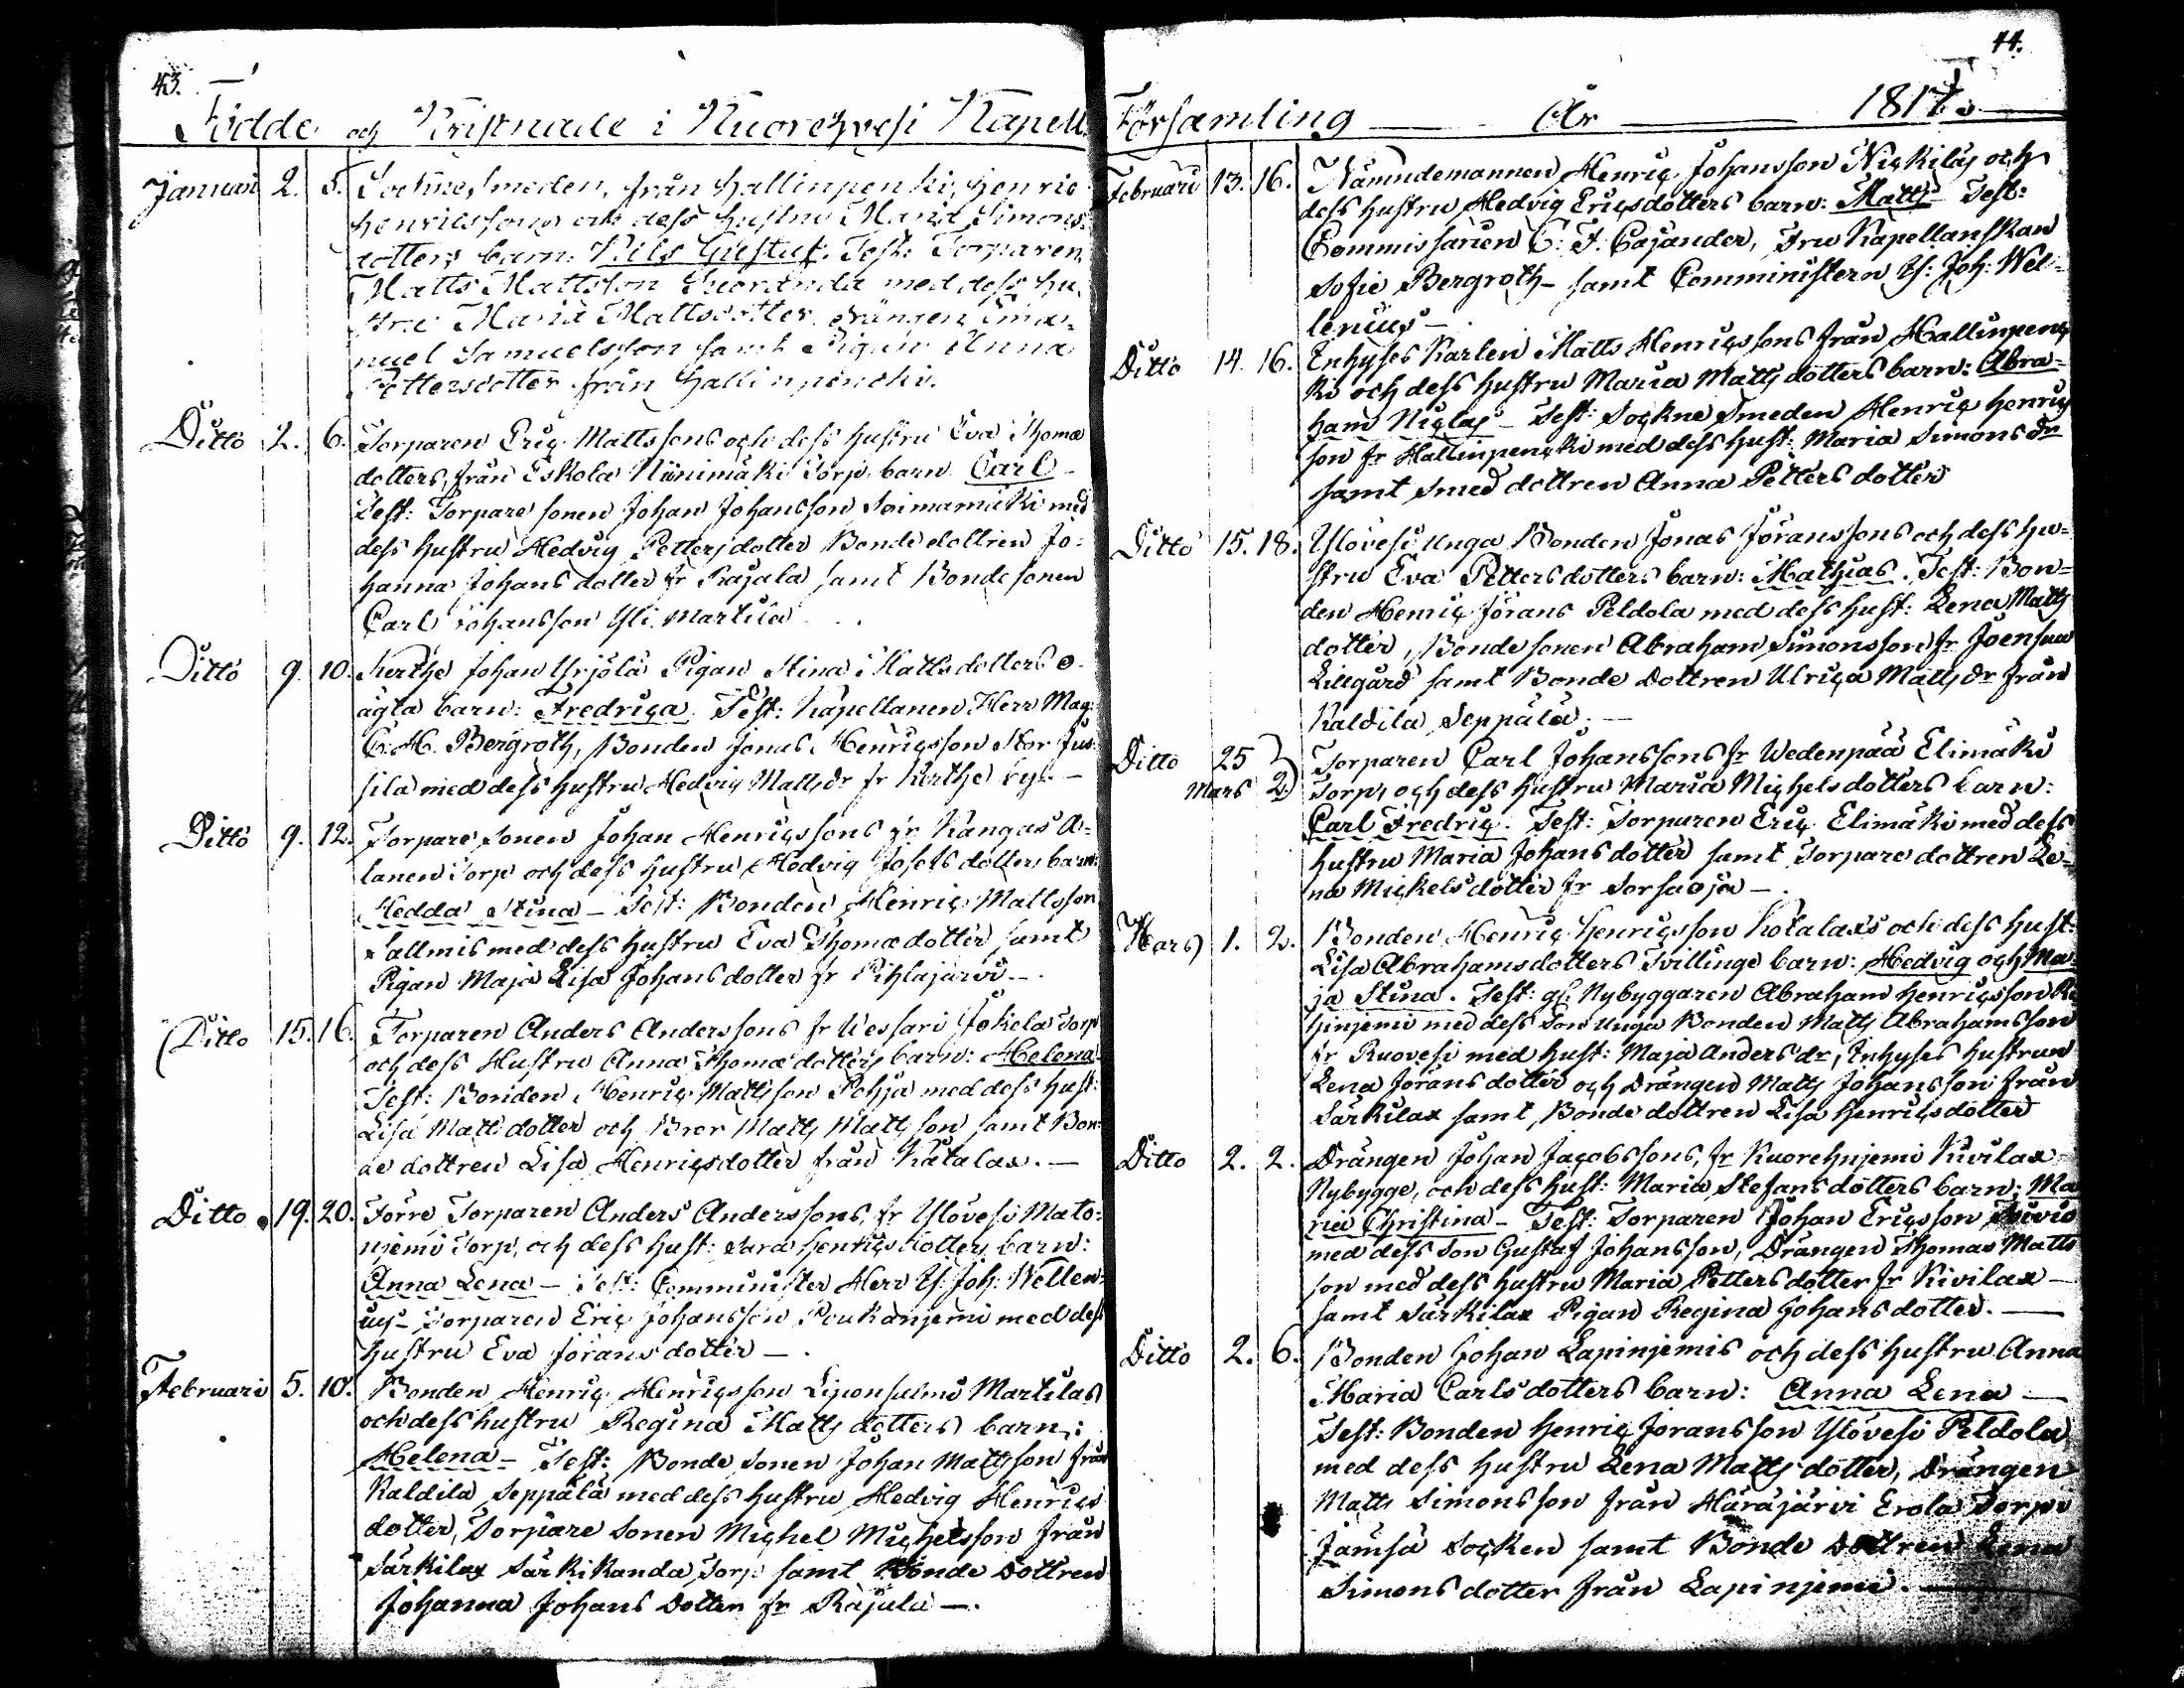 43.
Födde och Kristnade i Kuorevesi Kapell
Januari 2. 5. Sockne Smeden, från Hallinpenki, Henric
Henricssons och dess hustru Maria Simons
dotters barn: Nils Gustaf. Test: Torparen
Matts Mattsson Suoranda med dess hu
stru Maria Mattsdotter, drängen Ema-
nuel Samuelsson samt Pigan Anna
Pettersdotter från Hallinpenki.
Ditto 2. 6. Torparen Eric Mattssons och dess hustru Eva Thomæ
dotters, från Eskola Niinimäki Torp, barn Carl -
Test: Torpare sonen Johan Johansson med
dess hustru Hedvig Petters dotter Bonde dottren Jo-
hanna Johans dotter fr Rajala samt Bonde sonen
Carl Johansson Yli Martila
Ditto 9. 10. Kerthe Johan Yrjölä Pigan Stina Matts dotters o-
ägta barn: Fredrica. Test: Kapellanen Herr Mag:
C. H. Bergroth, Bonden Jonas Henricsson Stor Jus-
sila med dess hustru Hedvig Matts dr fr Kerthe by. -
Ditto 9. 12. Torpare sonen Johan Henricssons fr Kangas A-
lanen Torp och dess hustru Hedvig Josefs dotters barn:
Hedda Stina - Test: Bonden Henric Mattsson
Sallmis med dess hustru Eva Thomæ dotter samt
Pigan Maja Lisa Johans dotter fr Pihlajärvi -.
Ditto 15. 16. Torparen Anders Anderssons fr Vessari Jokela Torp
och dess Hustru Anna Thomæ dotters barn: Helena
Test: Bonden Henric Mattsson Pohja med dess hust:
Lisa Matts dotter och Bror Matts Mattsson samt Bon-
de dottren Lisa Henricsdotter från Katalax. -
Ditto 19. 20. Förre Torparen Anders Anderssons, fr Ylövesi Mato-
njemi Torp, och dess hust: Sara Henrics dotters barn:
Anna Lena - Test: Comminister Herr Is: Joh: Wellen-
ius - Torparen Eric Johansson Poukanjemi med dess
hustru Eva Jörans dotter -.
Februari 5. 10. Bonden Henric Henricsson Liponsalmi Martilas
och dess hustru Regina Matts dotters barn:
Helena - Test: Bonde sonen Johan Mattsson från
Kaldila Seppälä med dess hustru Hedvig Henrics
dotter, Torpare sonen Michel Michelsson från
Särkilax Särkikanda Torp samt Bonde Dottren
Johanna Johans Dotter fr Rajula -.
44.
Församling - År - 1817.
Februari 13. 16. Nämndemannen Henric Johansson Nickilas och
dess hustru Hedvig Ericsdotters barn: Matts - Test:
Commissarien C: F: Cajander, Fru Kapellanskan
Sofie Bergroth - samt Comministern Is: Joh: Wel-
lenius -
Ditto 14. 16. Enhyses Karlen Matts Henricssons från Hallinpen
ki och dess hustru Maria Matts dotters barn: Abra-
ham Niclas - Test: Sockne Smeden Henric Henrics
son fr Hallinpenki med dess hust: Maria Simons dr
samt Smed dottren Anna Petters dotter
Ditto 15. 18. Ylövesi unga Bonden Jonas Jöranssons och dess hu-
stru Eva Pettersdotters barn: Mathias. Test: Bon-
den Henric Jörans Peldola med dess hust: Lena Matts
dotter, Bonde sonen Abraham Simonsson fr Joensuu
Lillgård samt Bonde Dottren Ulrica Matts dr från
Kaldila Seppälä. -
Ditto 25 Torparen Carl Johanssons fr Wedenpää Elimäki
Mars 2 Torp, och dess hustru Maria Michels dotters barn:
Carl Fredric. Test: Torparen Eric Elimäki med dess
hustru Maria Johans dotter samt Torpare dottren Le-
na Mickels dotter fr Torsaoja -.
Mars 1. 2. Bonden Henric Henricsson Kotalax's och dess hust:
Lisa Abrahamsdotters Tvillinge barn: Hedvig och Ma-
ja Stina. Test: gl: Nybyggaren Abraham Henricsson
hinjemi med dess Son unga Bonden Matts Abrahamsson
fr Ruovesi med hust: Maja Anders dr, Inhyses hustrun
Lena Jörans dotter och Drängen Matts Johansson från
Särkilax samt Bonde dottren Lisa Henricsdotter
Ditto 2. 2. Drängen Johan Jacobssons, fr Kuorehnjemi Kivilax
Nybygge, och dess hust: Maria Stefans dotters barn: Ma
ria Christina - Test: Torparen Johan Ericsson
med dess Son Gustaf Johansson, Drängen Thomas Matts
son med dess hustru Maria Petters dotter fr Kivilax -
samt Särkilax Pigan Regina Johans dotter. -
Ditto 2. 6. Bonden Johan Lapinjemis och dess hustru Anna
Maria Carls dotters barn: Anna Lena -
Test: Bonden Henric Joransson Ylövesi Peldola
med dess hustru Lena Matts dotter, Drängen
Matts Simonsson från Häräjärvi Erola Torp i
Jämsä Socken samt Bonde Dottren Lena
Simons dotter från Lapinjemi. -